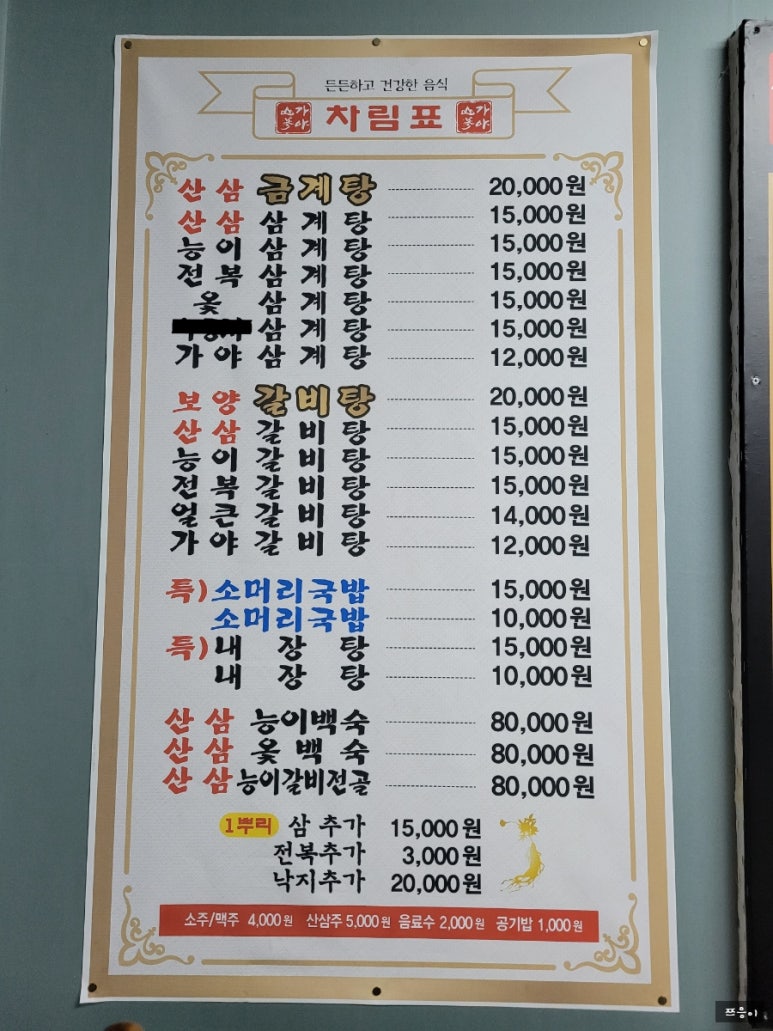 든든하고 건강한 음식
산가 차림표 산가
산삼 금계탕 20,000원
산삼 삼계탕 15,000원
능이 삼계탕 15,000원
전복 삼계탕 15,000원
옻 삼계탕 15,000원
삼계탕 15,000원
가야 삼계탕 12,000원
보양 갈비탕 20,000원
산삼 갈비탕 15,000원
능이 갈비탕 15,000원
전복 갈비탕 15,000원
얼큰 갈비탕 14,000원
가야 갈비탕 12,000원
특)소머리국밥 15,000원
소머리국밥 10,000원
특)내장탕 15,000원
내장탕 10,000원
산삼 능이백숙 80,000원
산삼 옻백숙 80,000원
산삼 능이갈비전골 80,000원
1뿌리 삼 추가 15,000원
전복추가 3,000원
낙지추가 20,000원
소주/맥주 4,000원 산삼주 5,000원 음료수 2,000원 공기밥 1,000원
쯔응이